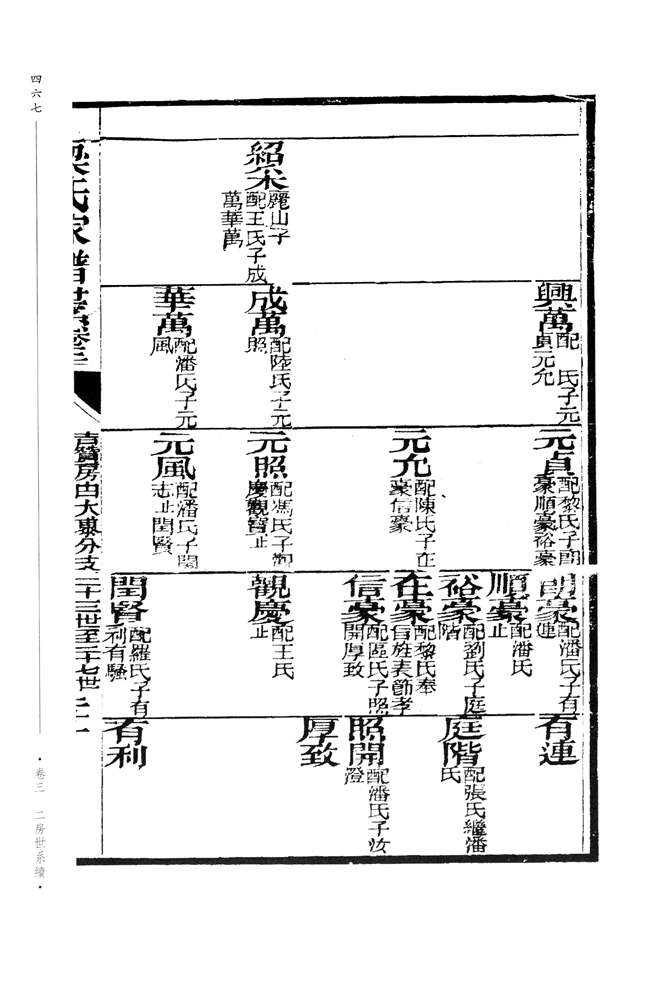 紹宋
麗山子
配王氏子成
萬華萬
興萬
配　氏子元
貞元允
成萬
配陸氏子元
照
華萬
配潘氏子元
風
元貞
配黎氏子
豪順豪裕豪
元允
配陳氏子在
豪信豪
元照
配馮氏子觀
慶觀寶止
元風
配潘氏子閏
志止閏賢
豪
配潘氏子有
連
順豪
配潘氏
止
裕豪
配劉氏子庭
階
在豪
配黎氏奉
旨旌表節孝
信豪
配區氏子照
開厚致
觀慶
配王氏
止
閏賢
配羅氏子有
利有驥
有連
庭階
配張氏繼潘
氏
照開
配潘氏子汝
澄
厚致
有利
梁氏家譜世系卷三
古贊房由大東分支二十三世至二十七世
四六七
卷三　二房世系續